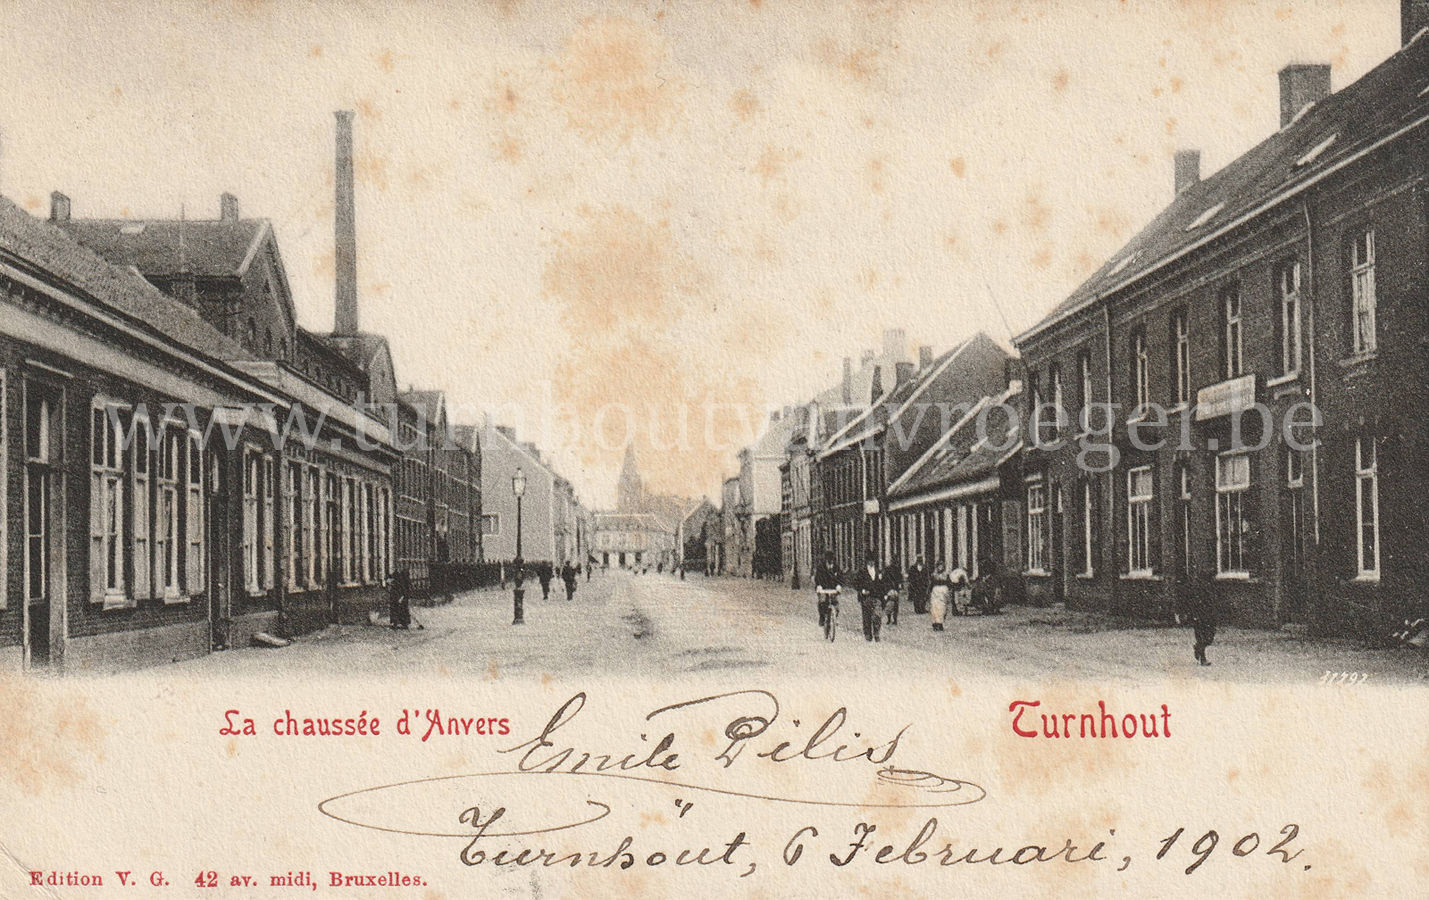 www.turnhoutvanvroeger.be
11792
La chaussée d'Anvers
Turnhout
Emile Pelis
Turnhout, 6 Februari, 1902.
Edition V. G. 42 av. midi, Bruxelles.